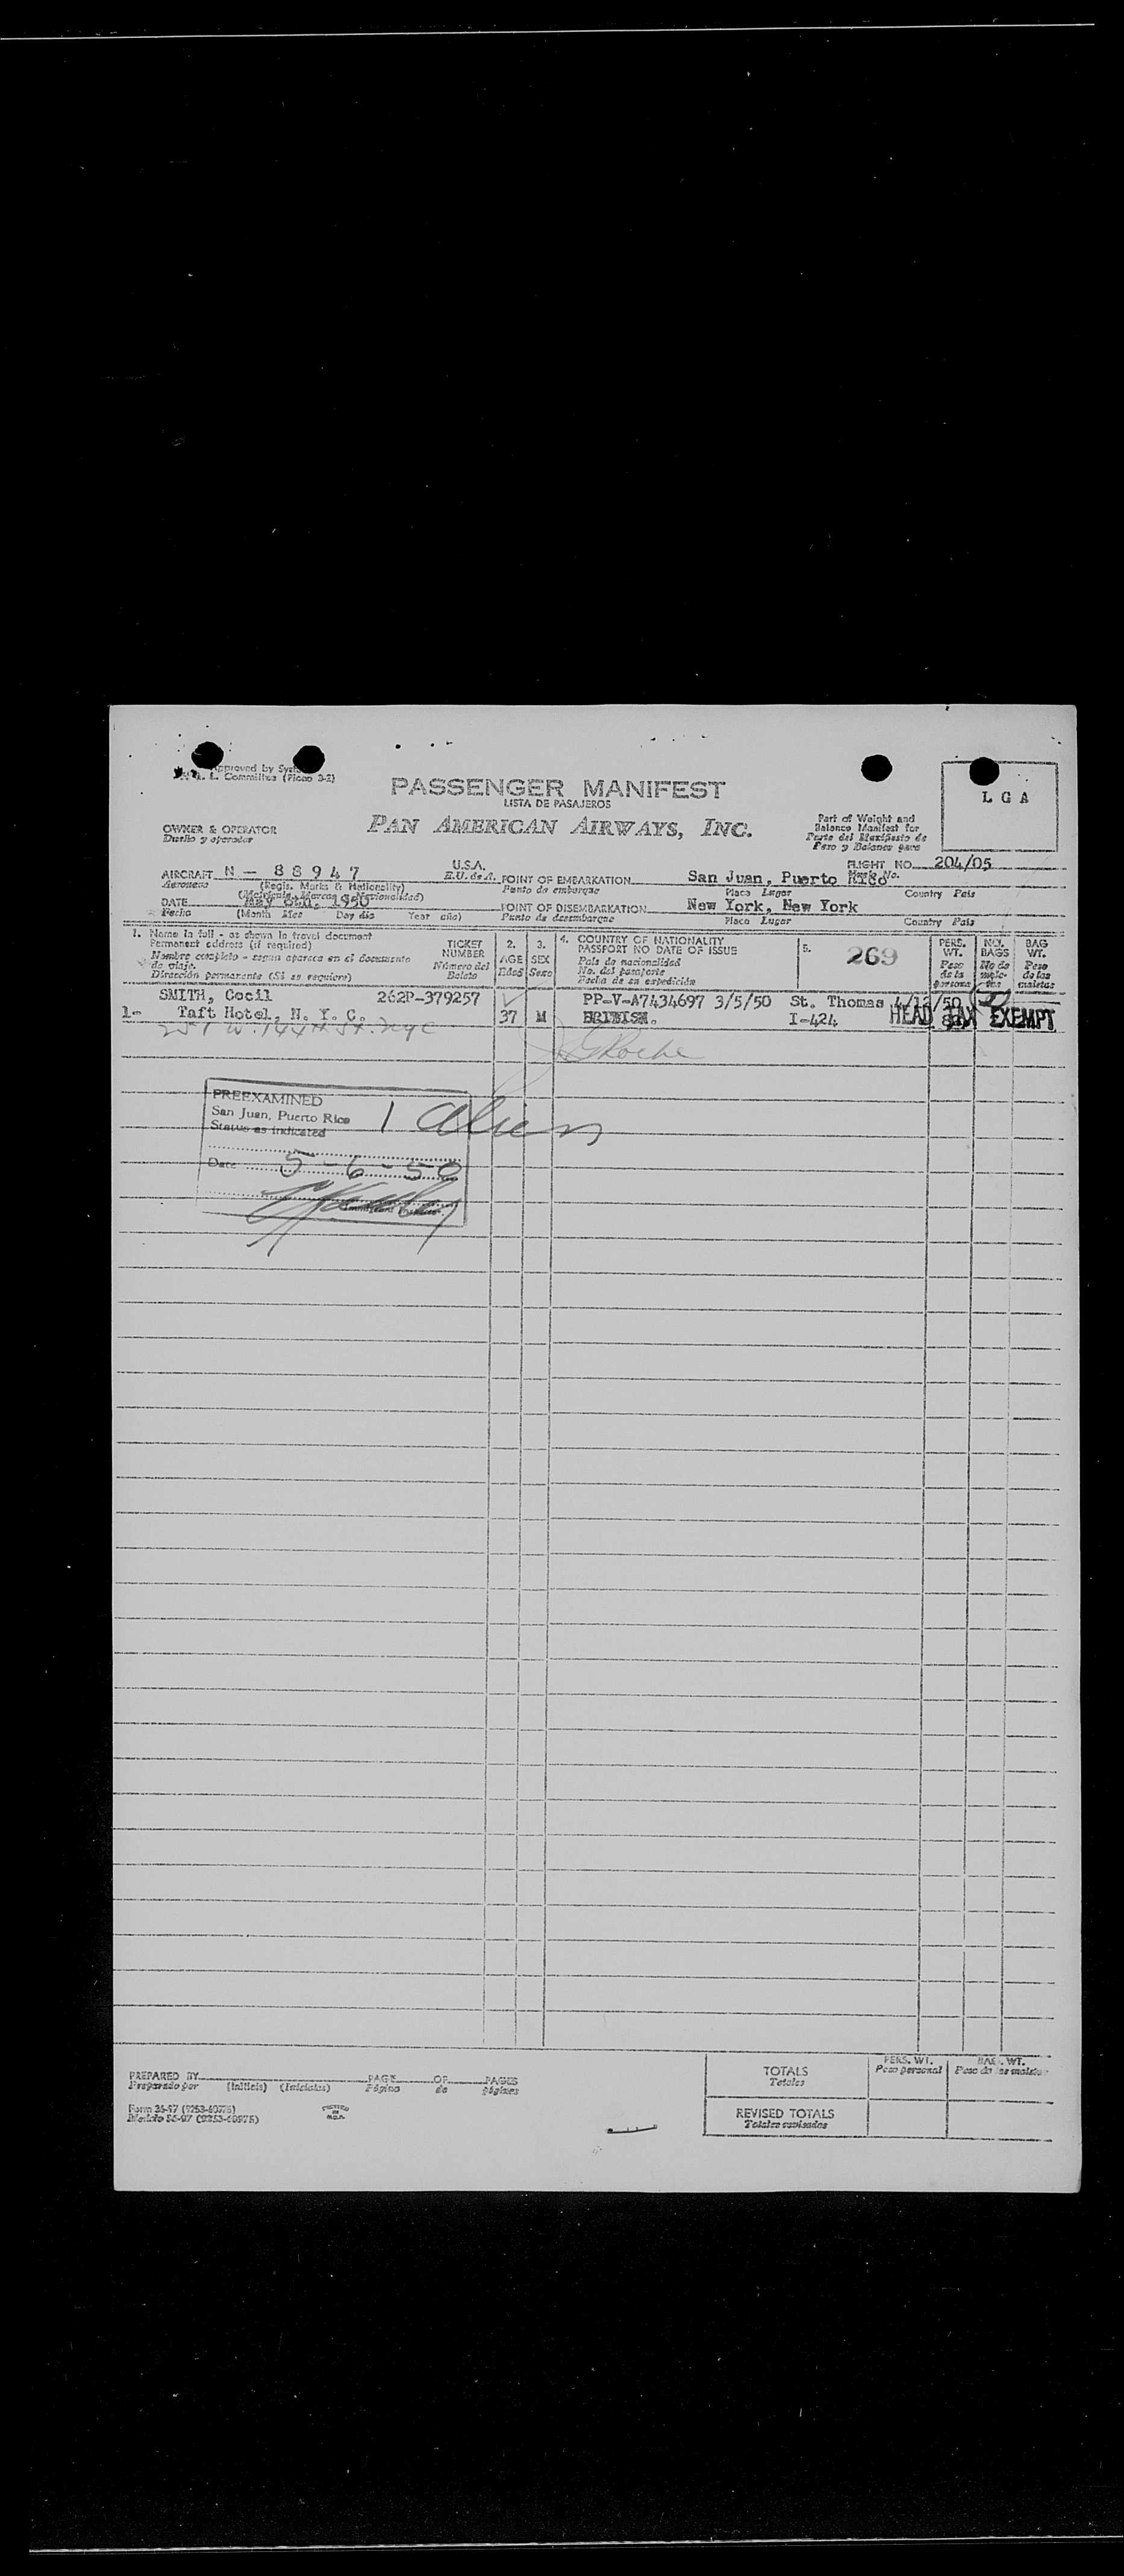 Approved by
L. Committee (Picao 3-2)
PASSENGER MANIFEST
LISTA DE PASAJEROS
PAN AMERICAN AIRWAYS, INC.
L G A
OWNER & OPERATOR
Dueño y operador
Part of Weight and
Balance Manifest for
Parte del Manifiesto de
Peso y Balance para
FLIGHT NO. 204/05
AIRCRAFT N - 88947 U.S.A.
Aeronave (Regis. Marks & Nationality) E.U. de A.
(Matrícula, Marcas y Nacionalidad)
POINT OF EMBARKATION San Juan, Puerto Rico
Punto de embarque Place Lugar Country País
DATE May 6th, 1950
Fecha (Month Mes Day día Year año)
POINT OF DISEMBARKATION New York, New York
Punto de desembarque Place Lugar Country País
1. Name in full - as shown in travel document
Permanent address (if required)
Nombre completo - según aparece en el documento
de viaje.
Dirección permanente (Si se requiere)
TICKET
NUMBER
Número del
Boleto
2.
AGE
Edad
3.
SEX
Sexo
4. COUNTRY OF NATIONALITY
PASSPORT NO DATE OF ISSUE
País de nacionalidad
No. del pasaporte
Fecha de su expedición
5.
269
PERS.
WT.
Peso
de la
persona
NO.
BAGS
No de
male-
tas
BAG
WT.
Peso
de las
maletas
SMITH, Cecil 262P-379257 PP-V-A7434697 3/5/50 St. Thomas 4/12/50
1- Taft Hotel, N. Y. C. 37 M BRITISH. I-424 HEAD TAX EXEMPT
251 W. 144th St. NYC
Roche
PREEXAMINED
San Juan, Puerto Rico
Status as indicated
1 alien
Date 5-6-50
PREPARED BY PAGE OF PAGES
Preparado por (Initials) (Iniciales) Página de páginas
TOTALS
Totales
PERS. WT.
Peso personal
BAG. WT.
Peso de las maletas
REVISED TOTALS
Totales revisados